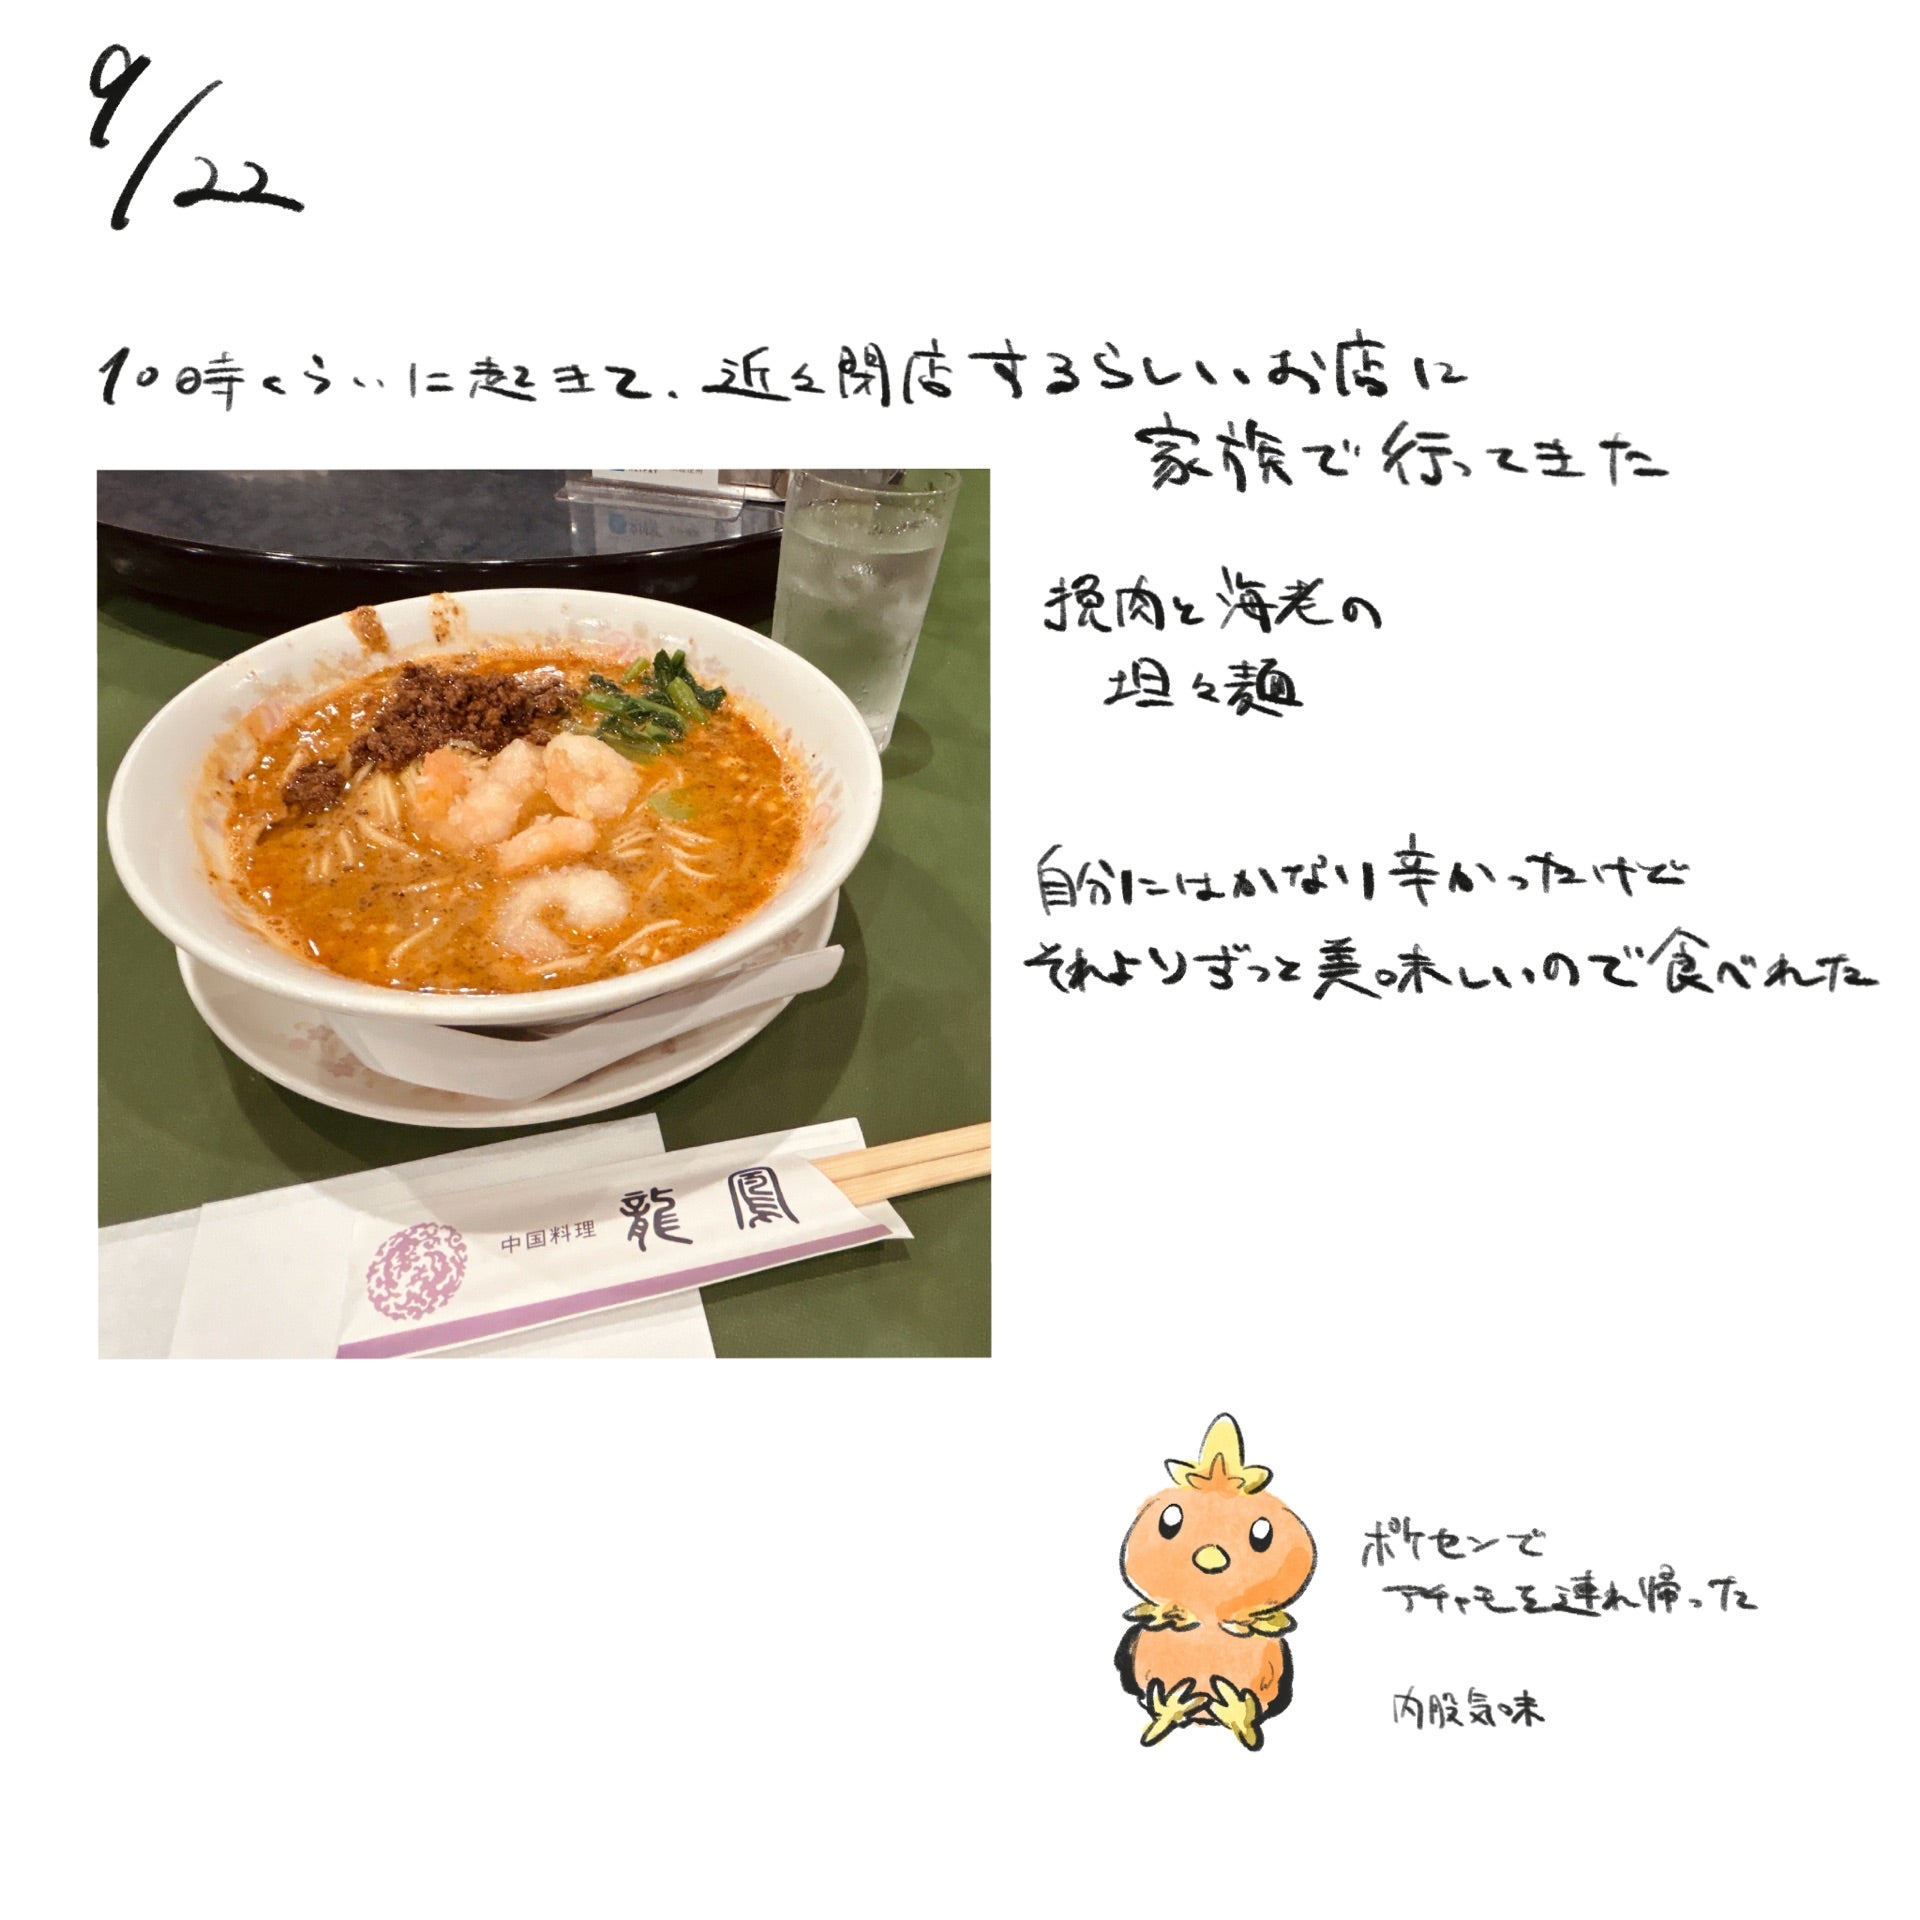 9/22
10時くらいに起きて、近々閉店するらしいお店に
家族で行ってきた
挽肉と海老の
坦々麺
自分にはかなり辛かったけど
それよりずっと美味しいので食べれた
中国料理 龍鳳
ポケセンで
アチャモを連れ帰った
内股気味